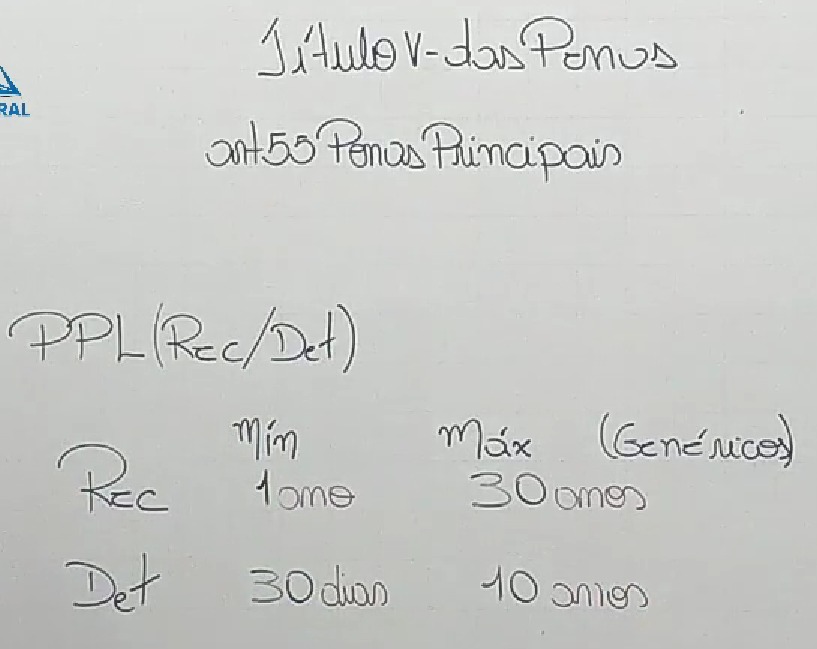 Título V - das Penas
RAL
art 55 Penas Principais
PPL (Rec/Det)
Mín Máx (Genéricos)
Rec 1 ano 30 anos
Det 30 dias 10 anos